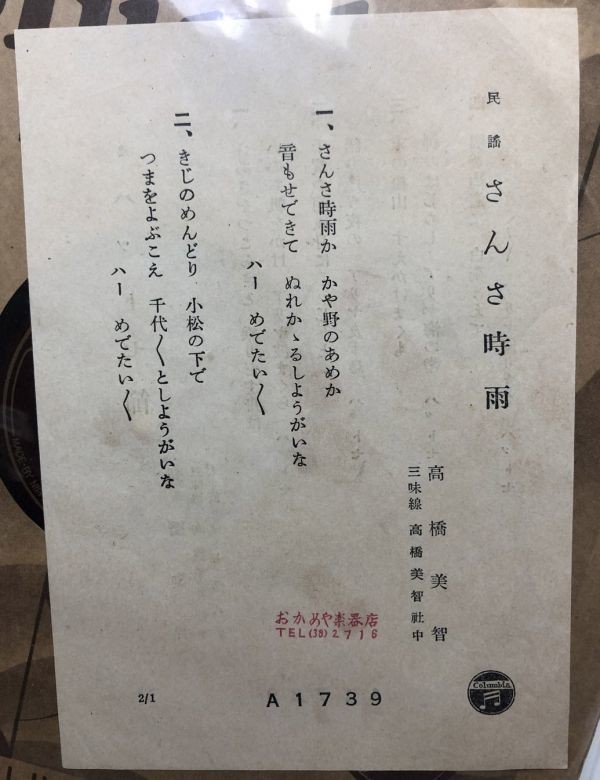 民謡 さんさ時雨
高橋美智
三味線 高橋美智社中
一、さんさ時雨か かや野のあめか
音もせできて ぬれかゝるしようがいな
ハー めでたい〱
二、きじのめんどり 小松の下で
つまをよぶこえ 千代〱としようがいな
ハー めでたい〱
おかめや楽器店
TEL(38)2716
Columbia
A1739
2/1